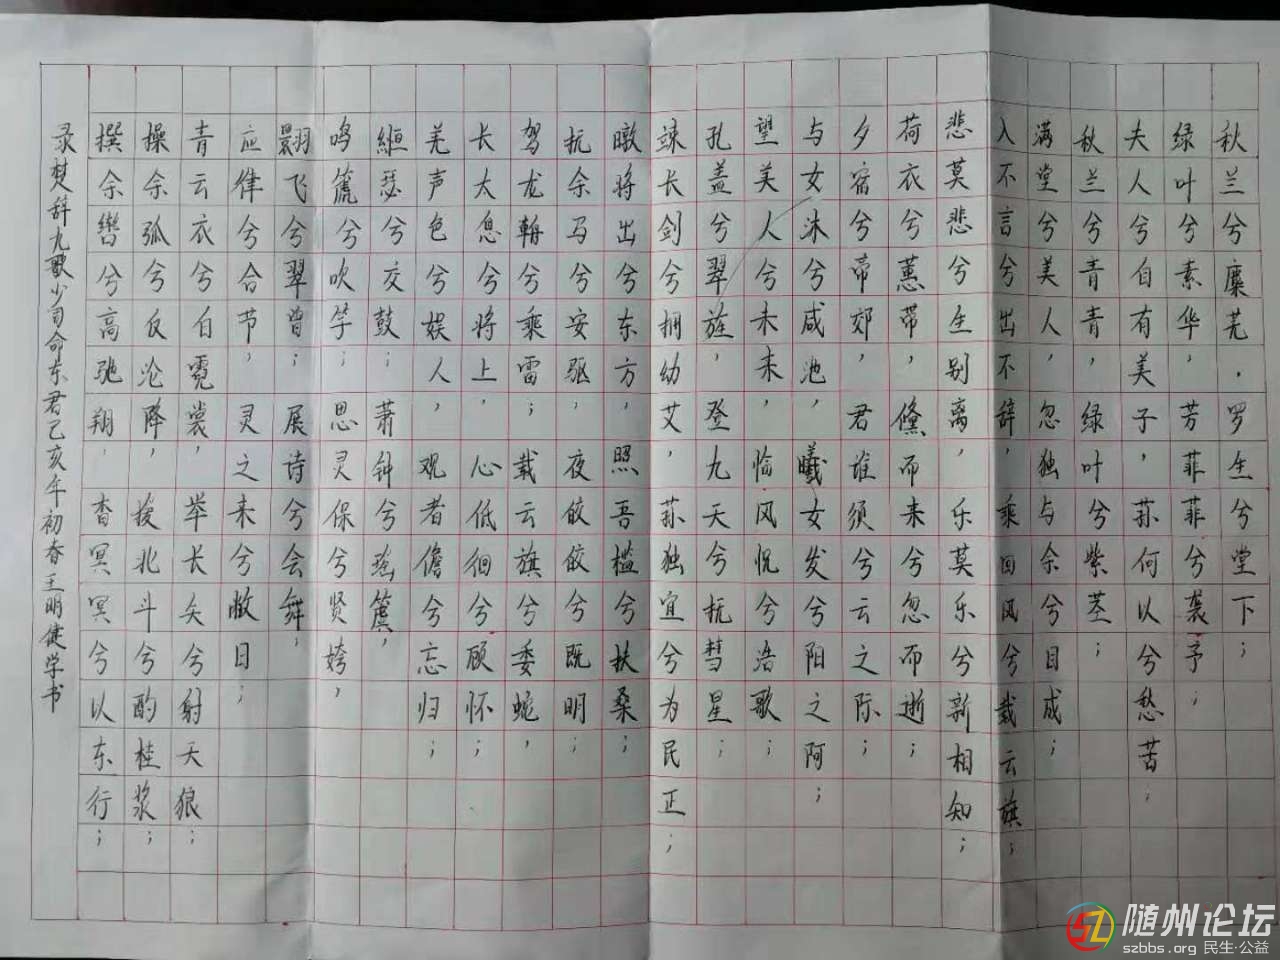 秋兰兮麋芜．罗生兮堂下；
绿叶素华，芳菲菲兮袭予；
夫人自有美子，荪何以兮愁苦；
秋兰兮青青，绿叶兮紫茎；
满堂兮美人，忽独与余兮目成；
入不言兮出不辞，乘回风兮载云旗；
悲莫悲兮生别离，乐莫乐兮新相知；
荷衣兮蕙带，儵而来兮忽而逝；
夕宿兮帝郊，君谁须兮云之际；
与女沐兮咸池，曦女发兮阳之阿；
望美人兮未来，临风怳兮浩歌；
孔盖兮翠旌，登九天兮抚彗星；
竦长剑兮拥幼艾，荪独宜兮为民正；
暾将出兮东方，照吾槛兮扶桑；
抚余马兮安驱，夜皎皎兮既明；
驾龙辀兮乘雷；载云旗兮委蛇，
长太息兮将上，心低徊兮顾怀；
羌声色兮娱人，观者儋兮忘归；
縆瑟兮交鼓；萧钟兮瑶簴，
鸣篪兮吹竽；思灵保兮贤姱，
翾飞兮翠曾；展诗兮会舞；
应律兮合节，灵之来兮敝日；
青云衣兮白霓裳，举长矢兮射天狼；
操余弧兮反沦降，援北斗兮酌桂浆；
撰余辔兮高驰翔．杳冥冥兮以东行；
录楚辞九歌少司命东君己亥年初春王明健学书
随州论坛
szbbs.org 民生·公益